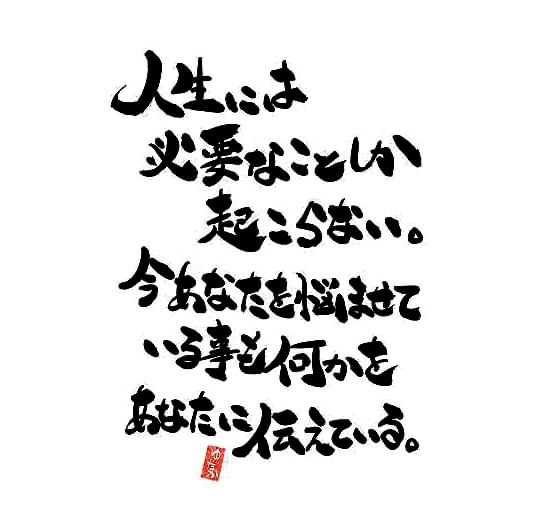 人生には
必要なことしか
起こらない。
今あなたを悩ませて
いる事も何かを
あなたに伝えている。
ゆたか